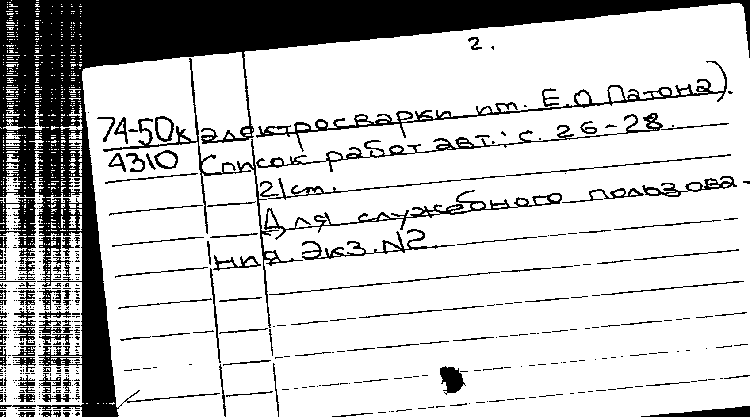 2.
74-50к электросварки им. Е.О Патона).
4310 Список работ авт.: с. 26-28.
21ст.
Для служебного пользова-
ния. Экз. N2.